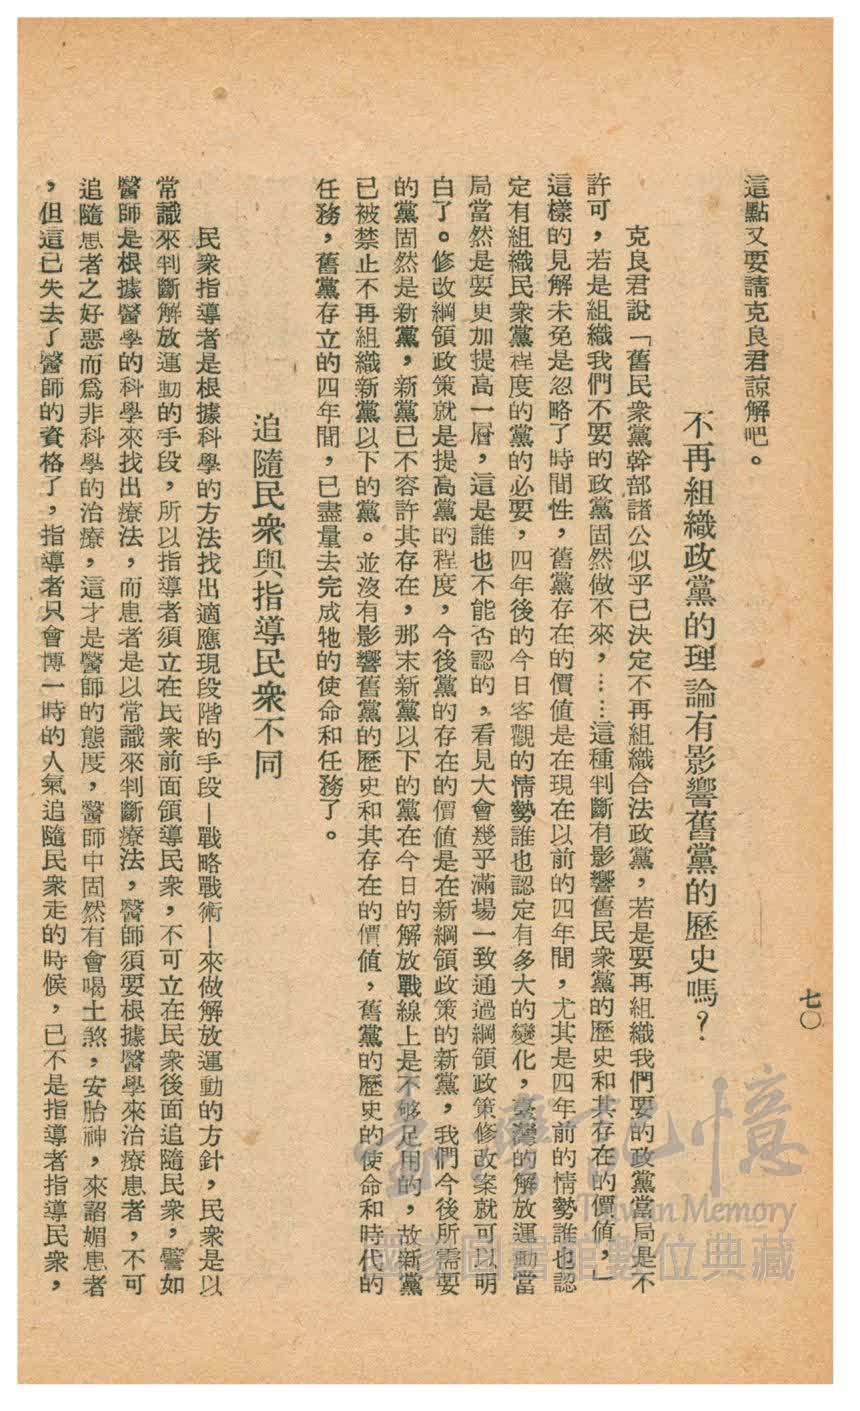 七〇
這點又要請克良君諒解吧。
不再組織政黨的理論有影響舊黨的歷史嗎？
克良君說「舊民衆黨幹部諸公似乎已決定不再組織合法政黨，若是要再組織我們要的政黨當局是不
許可，若是組織我們不要的政黨固然做不來，……這種判斷有影響舊民衆黨的歷史和其存在的價值，」
這樣的見解未免是忽略了時間性，舊黨存在的價值是在現在以前的四年間，尤其是四年前的情勢誰也認
定有組織民衆黨程度的黨的必要，四年後的今日客觀的情勢誰也認定有多大的變化，臺灣的解放運動當
局當然是要更加提高一層，這是誰也不能否認的，看見大會幾乎滿場一致通過綱領政策修改案就可以明
白了。修改綱領政策就是提高黨的程度，今後黨的存在的價值是在新綱領政策的新黨，我們今後所需要
的黨固然是新黨，新黨已不容許其存在，那末新黨以下的黨在今日的解放戰線上是不够足用的，故新黨
已被禁止不再組織新黨以下的黨。並沒有影響舊黨的歷史和其存在的價值，舊黨的歷史的使命和時代的
任務，舊黨存立的四年間，已盡量去完成牠的使命和任務了。
追隨民衆與指導民衆不同
民衆指導者是根據科學的方法找出適應現段階的手段—戰略戰術—來做解放運動的方針，民衆是以
常識來判斷解放運動的手段，所以指導者須立在民衆前面領導民衆，不可立在民衆後面追隨民衆，譬如
醫師是根據醫學的科學來找出療法，而患者是以常識來判斷療法，醫師須要根據醫學來治療患者，不可
追隨患者之好惡而爲非科學的治療，這才是醫師的態度，醫師中固然有會喝土煞，安胎神，來諂媚患者
，但這已失去了醫師的資格了，指導者只會博一時的人氣追隨民衆走的時候，已不是指導者指導民衆，
臺灣記憶
Taiwan Memory
國家圖書館數位典藏